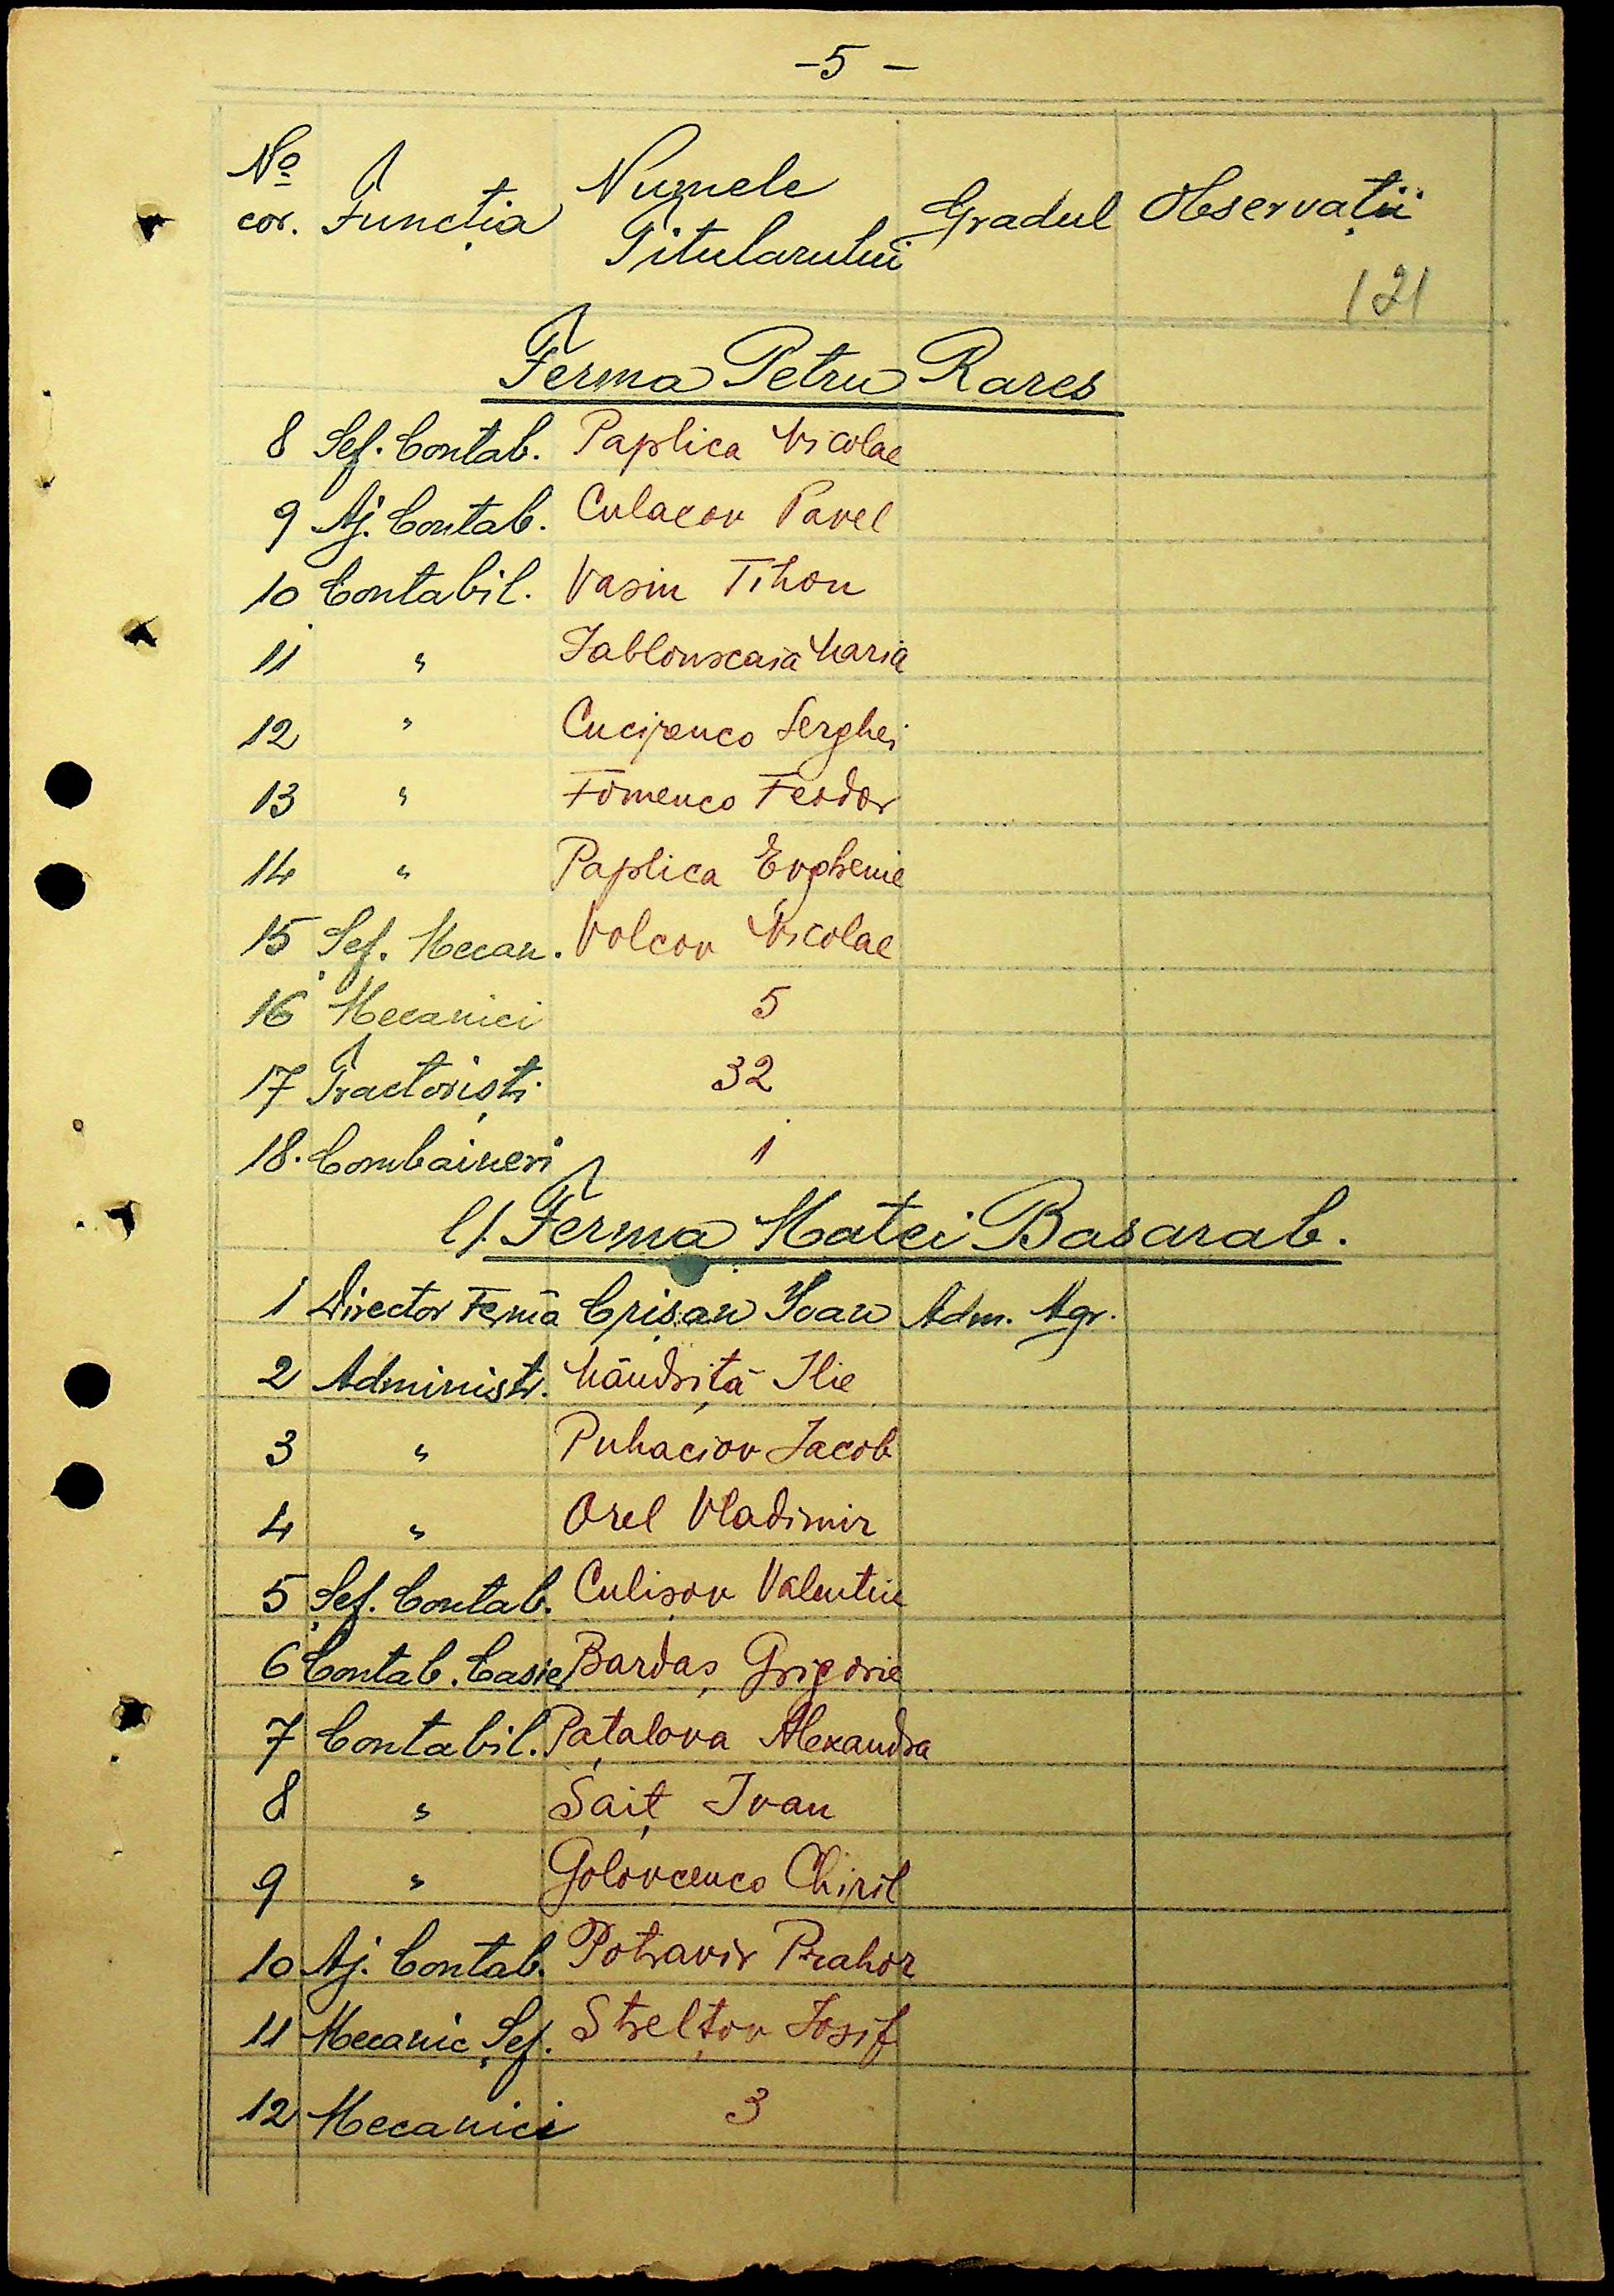 -5-
No cor. Funcția Numele Titularului Gradul Observații
121
Ferma Petru Rares
8 Sef. Contab. Paplica Nicolae
9 Aj. Contab. Culacov Pavel
10 Contabil. Vasin Tihon
11 " Iablonscaia Maria
12 " Cucirenco Serghei
13 " Fomenco Feodor
14 " Paplica Evghenie
15 Șef. Mecan. Volcov Nicolae
16 Mecanici 5
17 Tractoriști 32
18. Combaineri 1
l/. Ferma Matei Basarab.
1 Director Fermă Crișan Ioan Adm. Agr.
2 Administr. Mândriță Ilie
3 " Puhaciov Iacob
4 " Orel Vladimir
5 Șef. Contab. Culișov Valentin
6 Contab. Casier Bardaș Grigorie
7 Contabil. Pațalova Alexandra
8 " Saiț Ivan
9 " Golovcenco Chiril
10 Aj. Contab. Potravir Prahor
11 Mecanic Șef. Strelțov Iosif
12 Mecanici 3